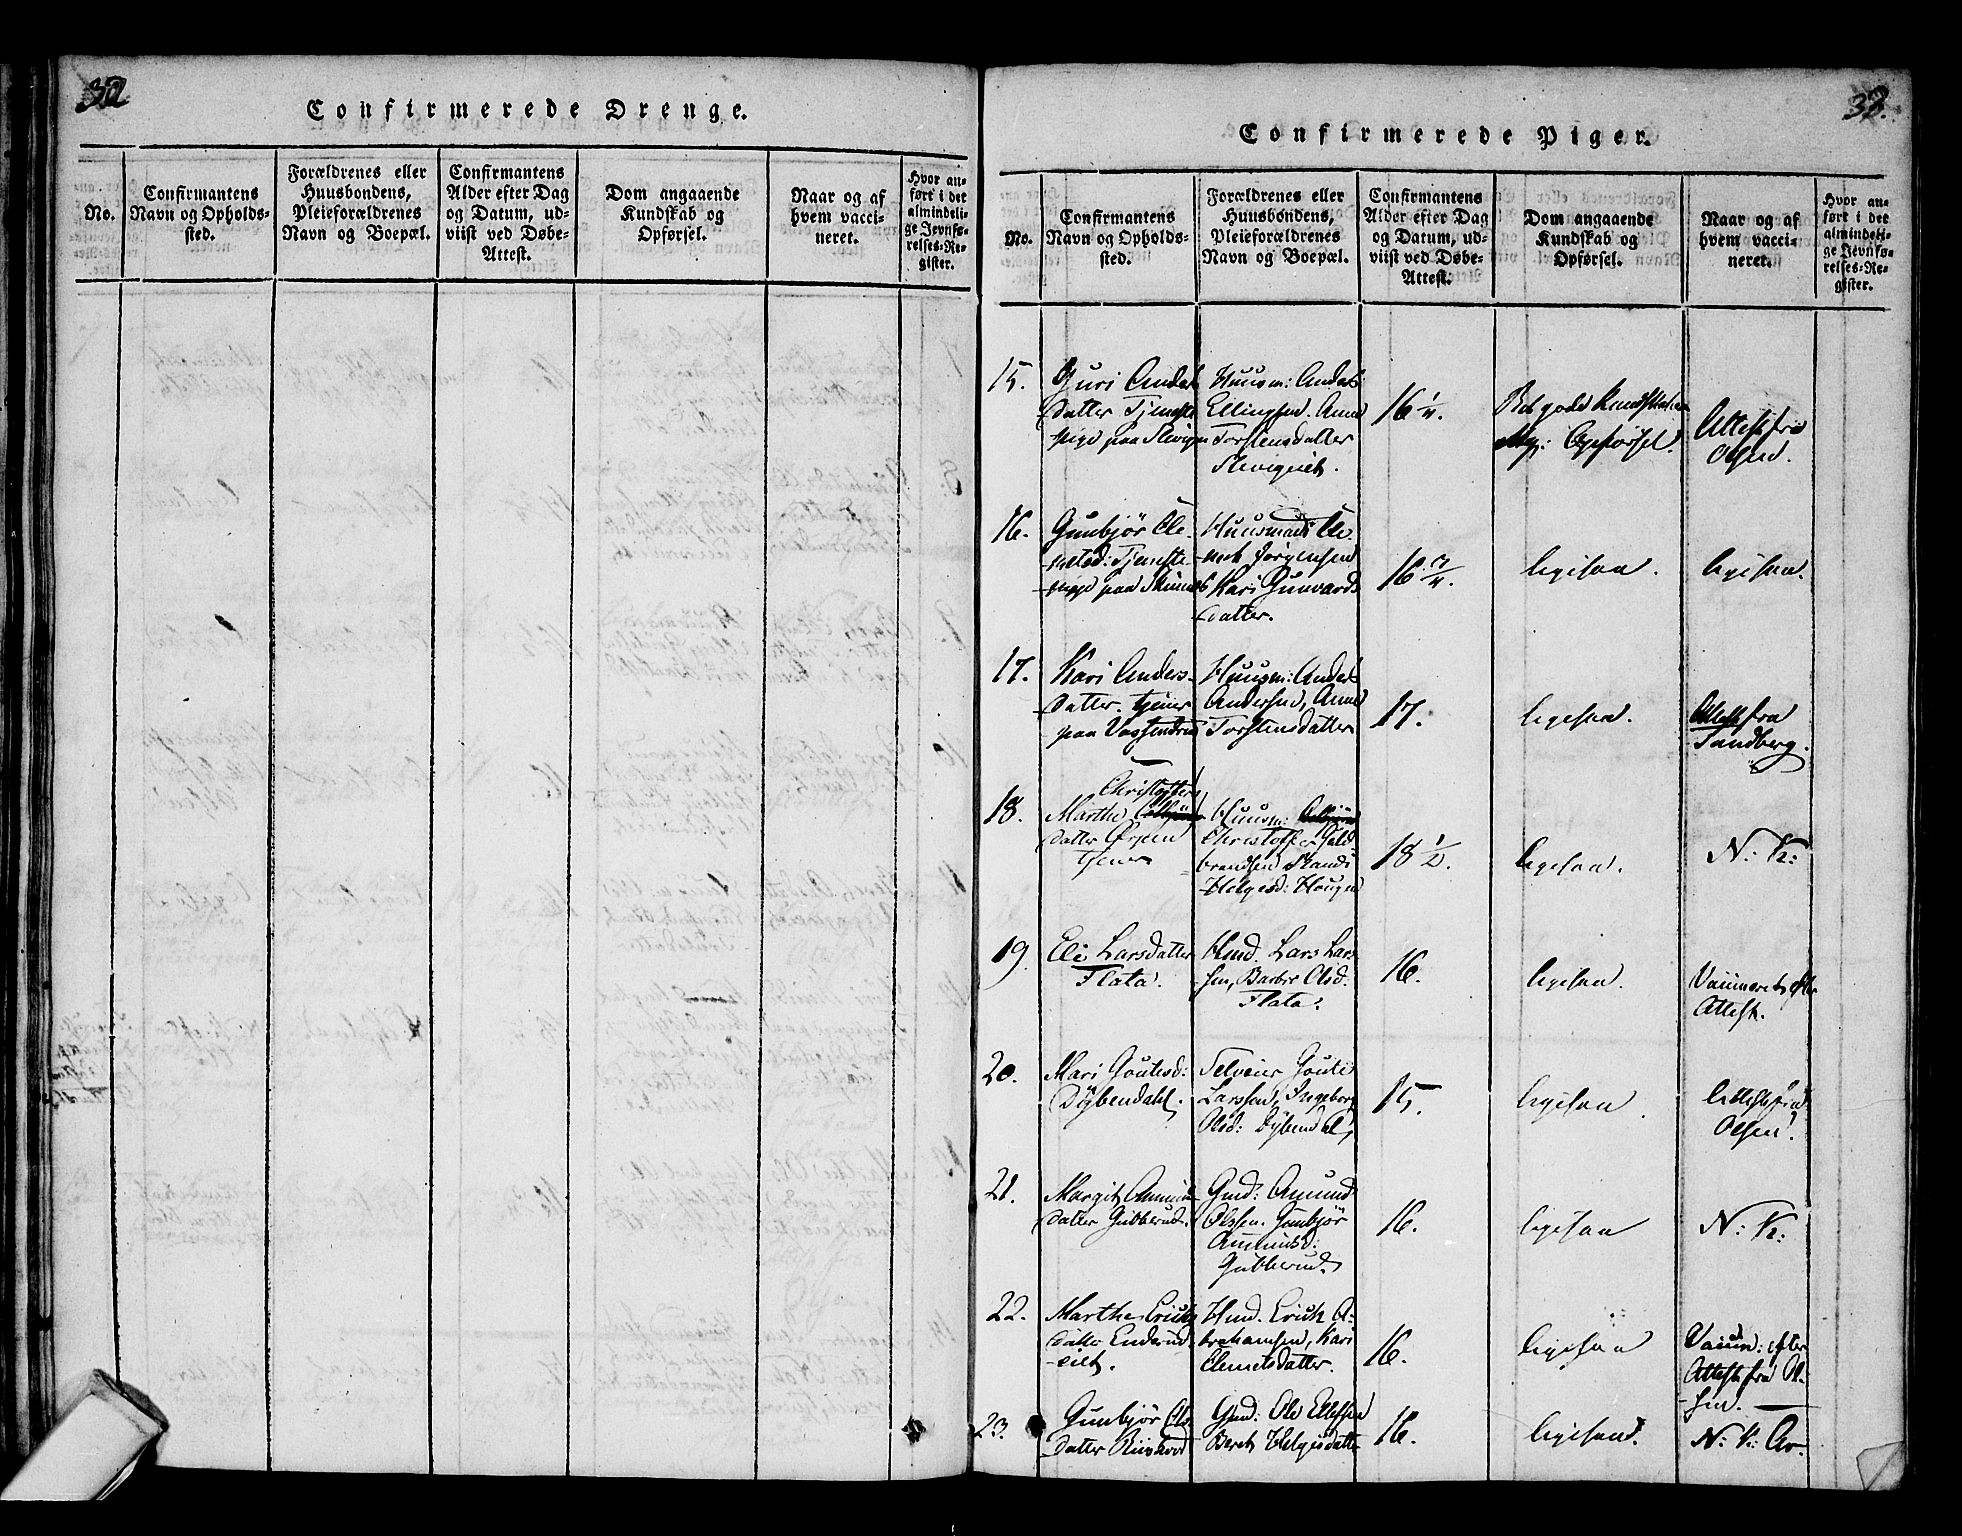 32
Confirmerede Drenge.
No.
Confirmantens
Navn og Opholds-
sted.
Forældrenes eller
Huusbondens,
Pleieforældrenes
Navn og Boepæl.
Confirmantens
Alder efter Dag
og Datum, ud-
viist ved Døbe-
Attest.
Dom angaaende
Kundskab og
Opførsel.
Naar og af
hvem vacci-
neret.
Hvor an-
ført i det
almindeli-
ge Jevnfø-
relses-Re-
gister.
Confirmerede Piger.
No.
Confirmantens
Navn og Opholds-
sted.
Forældrenes eller
Huusbondens,
Pleieforældrenes
Navn og Boepæl.
Confirmantens
Alder efter Dag
og Datum, ud-
viist ved Døbe-
Attest.
Dom angaaende
Kundskab og
Opførsel.
Naar og af
hvem vacci-
neret.
Hvor an-
ført i det
almindeli-
ge Jevnfø-
relses-Re-
gister.
15.
Guri Anders
datter Tjeneste
pige paa
Huusm: Anders
Ellingsen. Anne
Torstensdatter
16 1/4.
gode Kundskaber
Opførsel.
Attest fra
Olsen.
16.
Gunbjør Cle-
Tjeneste
pige paa
Huusmand Cle-
Jørgensen
Kari Gunvards
datter.
16 3/4.
ligesaa.
ligesaa.
17.
Kari Anders-
datter. tjener
paa
Huusm: Anders
Andersen, Anne
Torstensdatter
17.
ligesaa.
Attest fra
Sandberg.
18.
Christoffers
Marthe
datter
tjener
Huusm:
Christoffer Guld-
brandsen
Helgesd: Hougen
18 1/2.
ligesaa.
N: K:
19.
Eli Larsdatter
Flata.
Lars Lars-
sen, Barbro Olsd:
Flata.
16.
ligesaa.
efter
Attest.
20.
Mari Goutesd:
Dybendahl.
Selveier Goute
Larssen, Ingeborg
Olsd: Dybendal,
15.
ligesaa.
Attest fra
Olsen.
21.
Margit Amunds
datter Gubberud.
Gmd: Amund
Olssen. Gunbjør
Amundsd:
Gubberud.
16.
ligesaa
N: K:
22.
Marthe Erichs
datter Enderud-
-eiet.
Erich A-
brahamsen, Kari
Clemetsdatter.
16.
ligesaa
Vaccin: efter
Attest fra Ol-
sen.
23.
Gunbjør Ols-
datter
Gmd: Ole Ellefsen
Beret Helgesdatter
16.
ligesaa.
N: K: